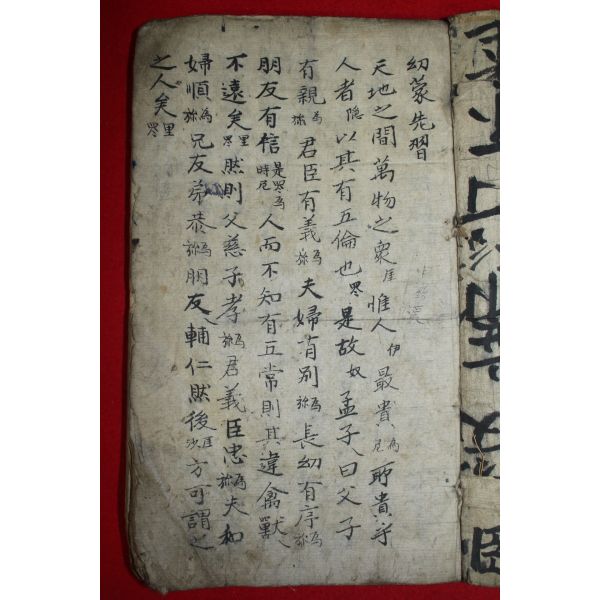 幼蒙先習
天地之間萬物之衆厓惟人伊最貴爲尼所貴乎
人者隐以其有五倫也罖是故奴孟子曰父子
有親爲旀君臣有義爲旀夫婦有別爲旀長幼有序爲旀
朋友有信是罖爲時尼人而不知有五常則其違禽獸
不遠矣里罖然則父慈子孝爲旀君義臣忠爲旀夫和
婦順爲旀兄友弟恭爲旀朋友輔仁然後厓沙方可謂之
之人矣里罖